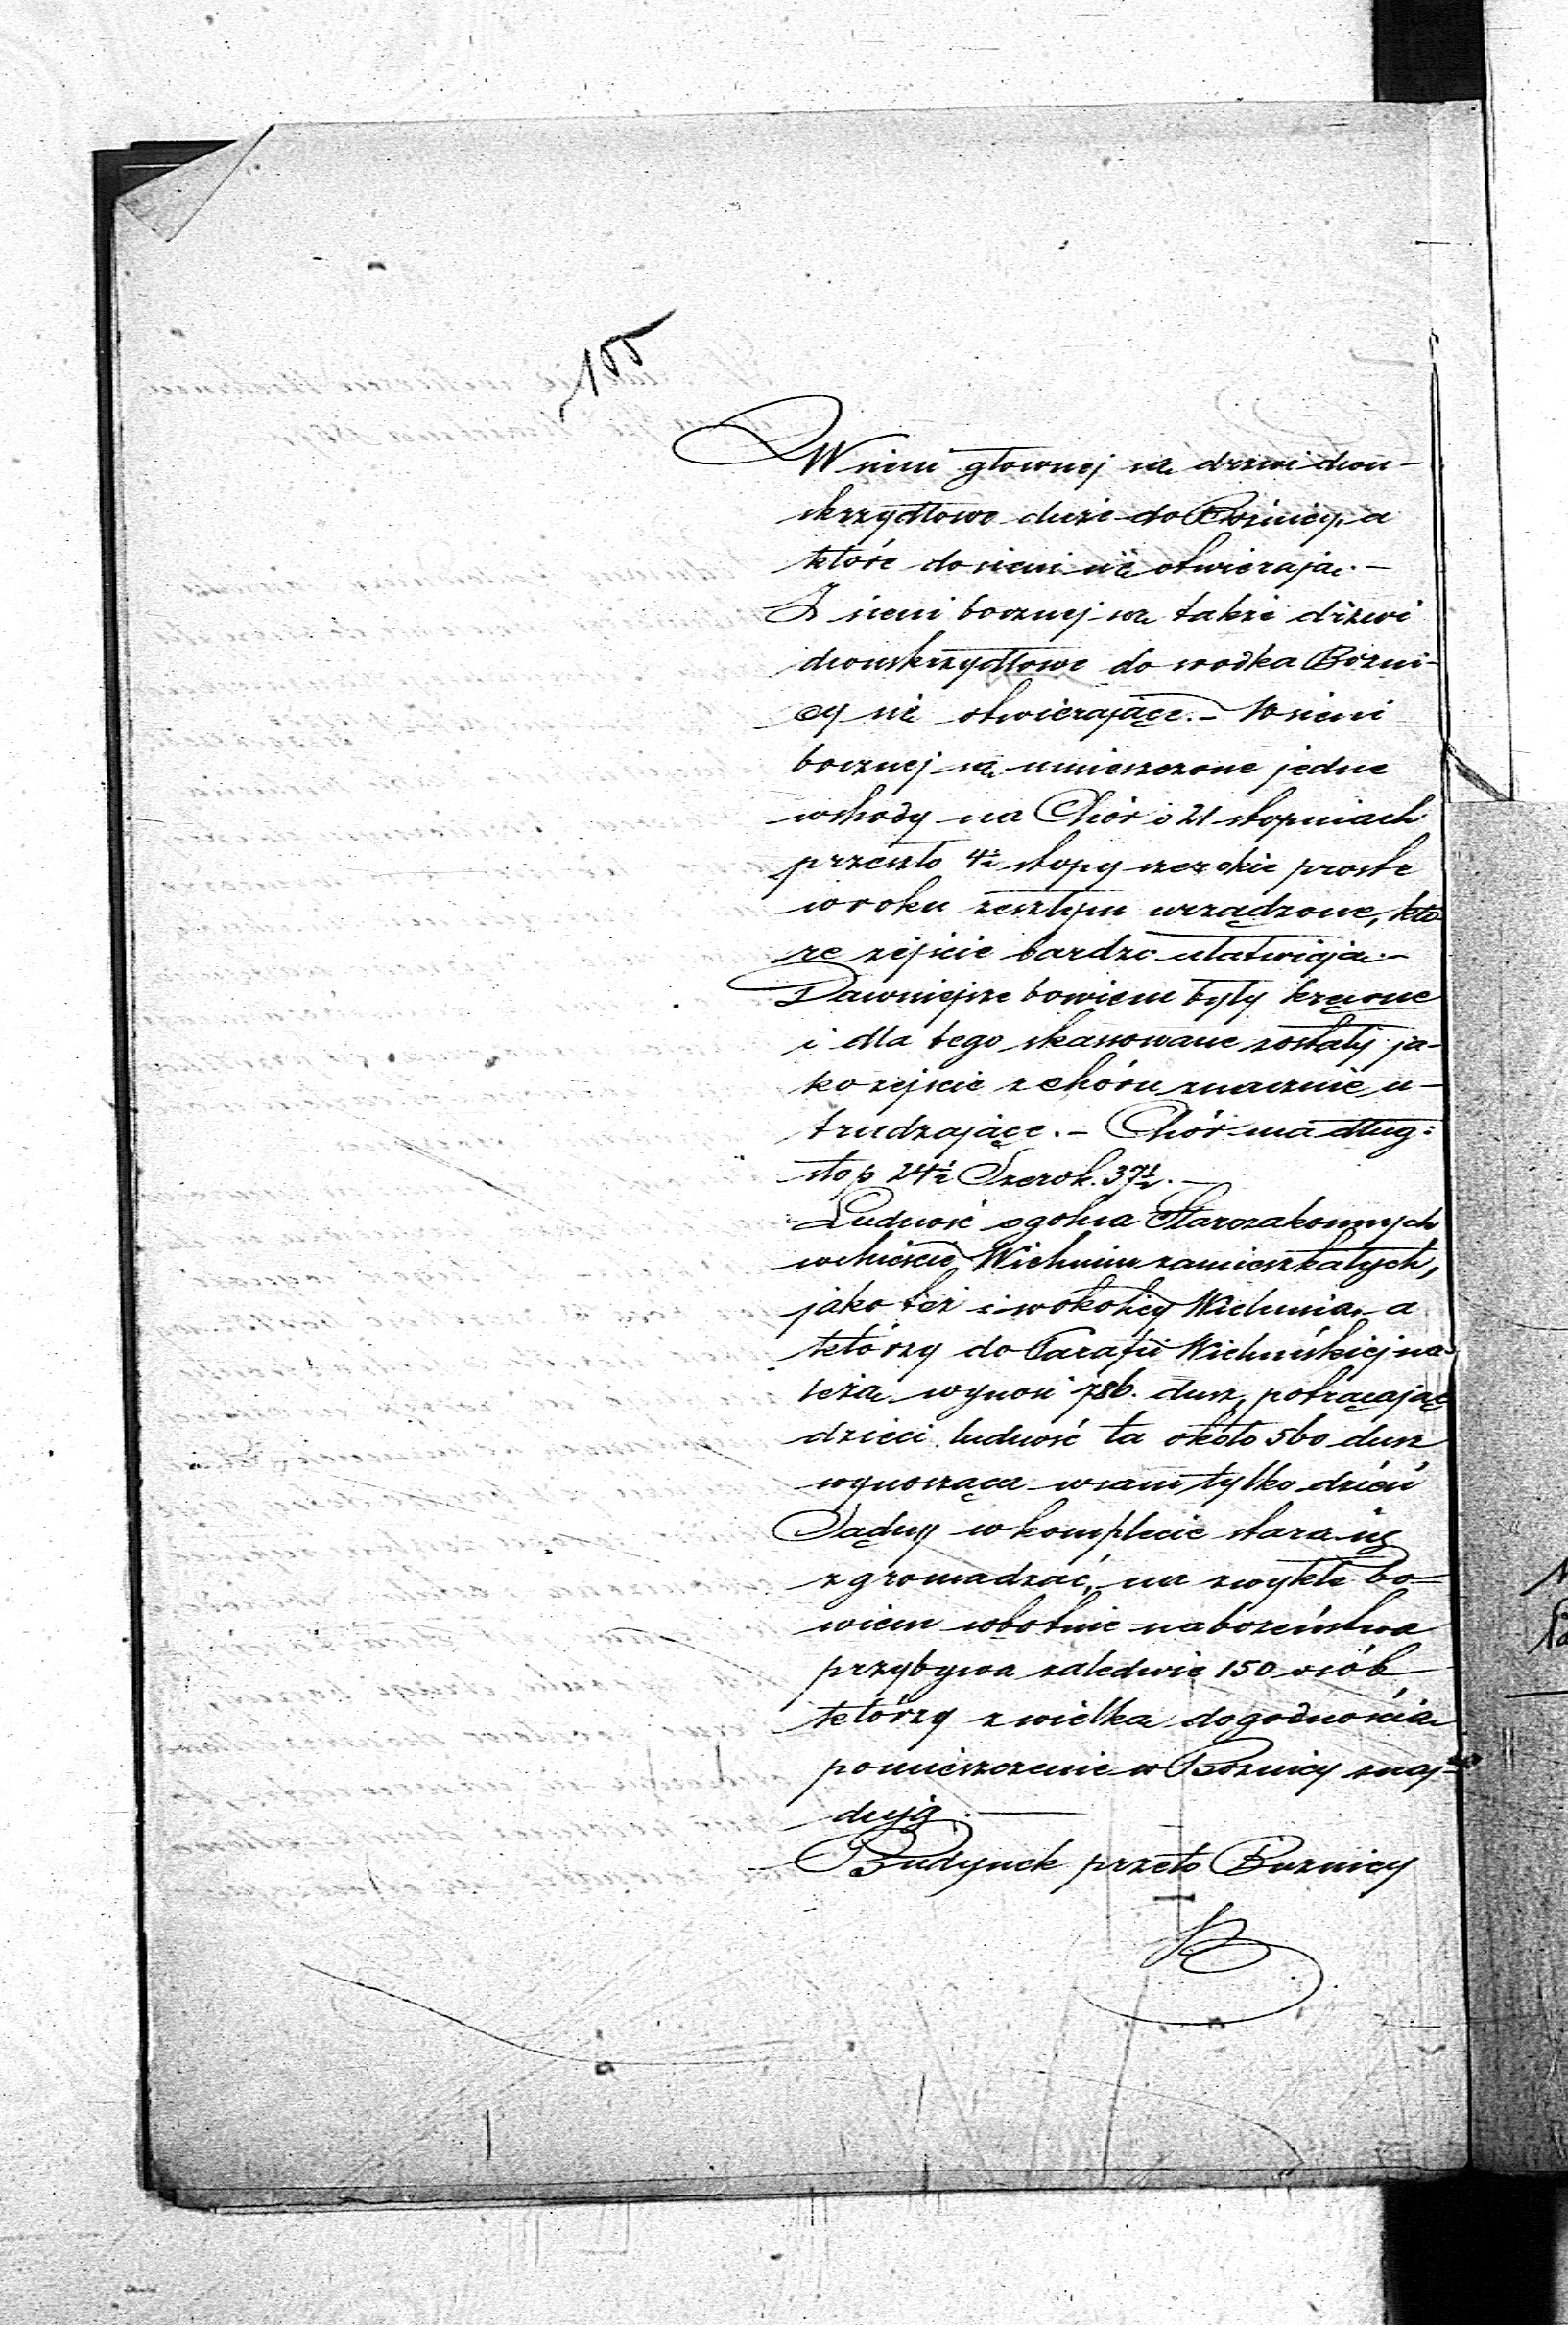 155
W sieni głownej są drzwi dwu-
skrzydłowe duże do Bożnicy, a
które do sieni się otwierają. —
Z sieni bocznej są także drzwi
dwuskrzydłowe do srodka Bożni-
cy się otwierające. — W sieni
bocznej są umieszczone jedne
wschody na Chór o 21 stopniach
przeszło 4½ stopy szerokie proste
w roku zeszłym urządzone, któ
re zejscie bardzo ułatwiają. —
Dawniejsze bowiem były kręcone
i dla tego skassowane zostały ja-
ko zejscie z chóru znacznie u-
trudzające. — Chór ma dług:
stop 24½ Szerok. 37½. —
Ludność ogolna Starozakonnych
w Mieście Wieluniu zamieszkałych,
jako też i w okolicy Wielunia, a
którzy do Parafii Wieluńskiej na-
leżą wynosi 786. dusz, potrącając
dzieci ludność ta około 560 dusz
wynosząca w sam tylko dzień
Sądny w komplecie stara się
zgromadzać, na zwykłe bo=
wiem sobotnie nabożeństwa
przybywa zaledwie 150 osób,
którzy z wielką dogodnością
pomieszczenie w Bożnicy znaj-
dują. —
Budynek przeto Bożnicy